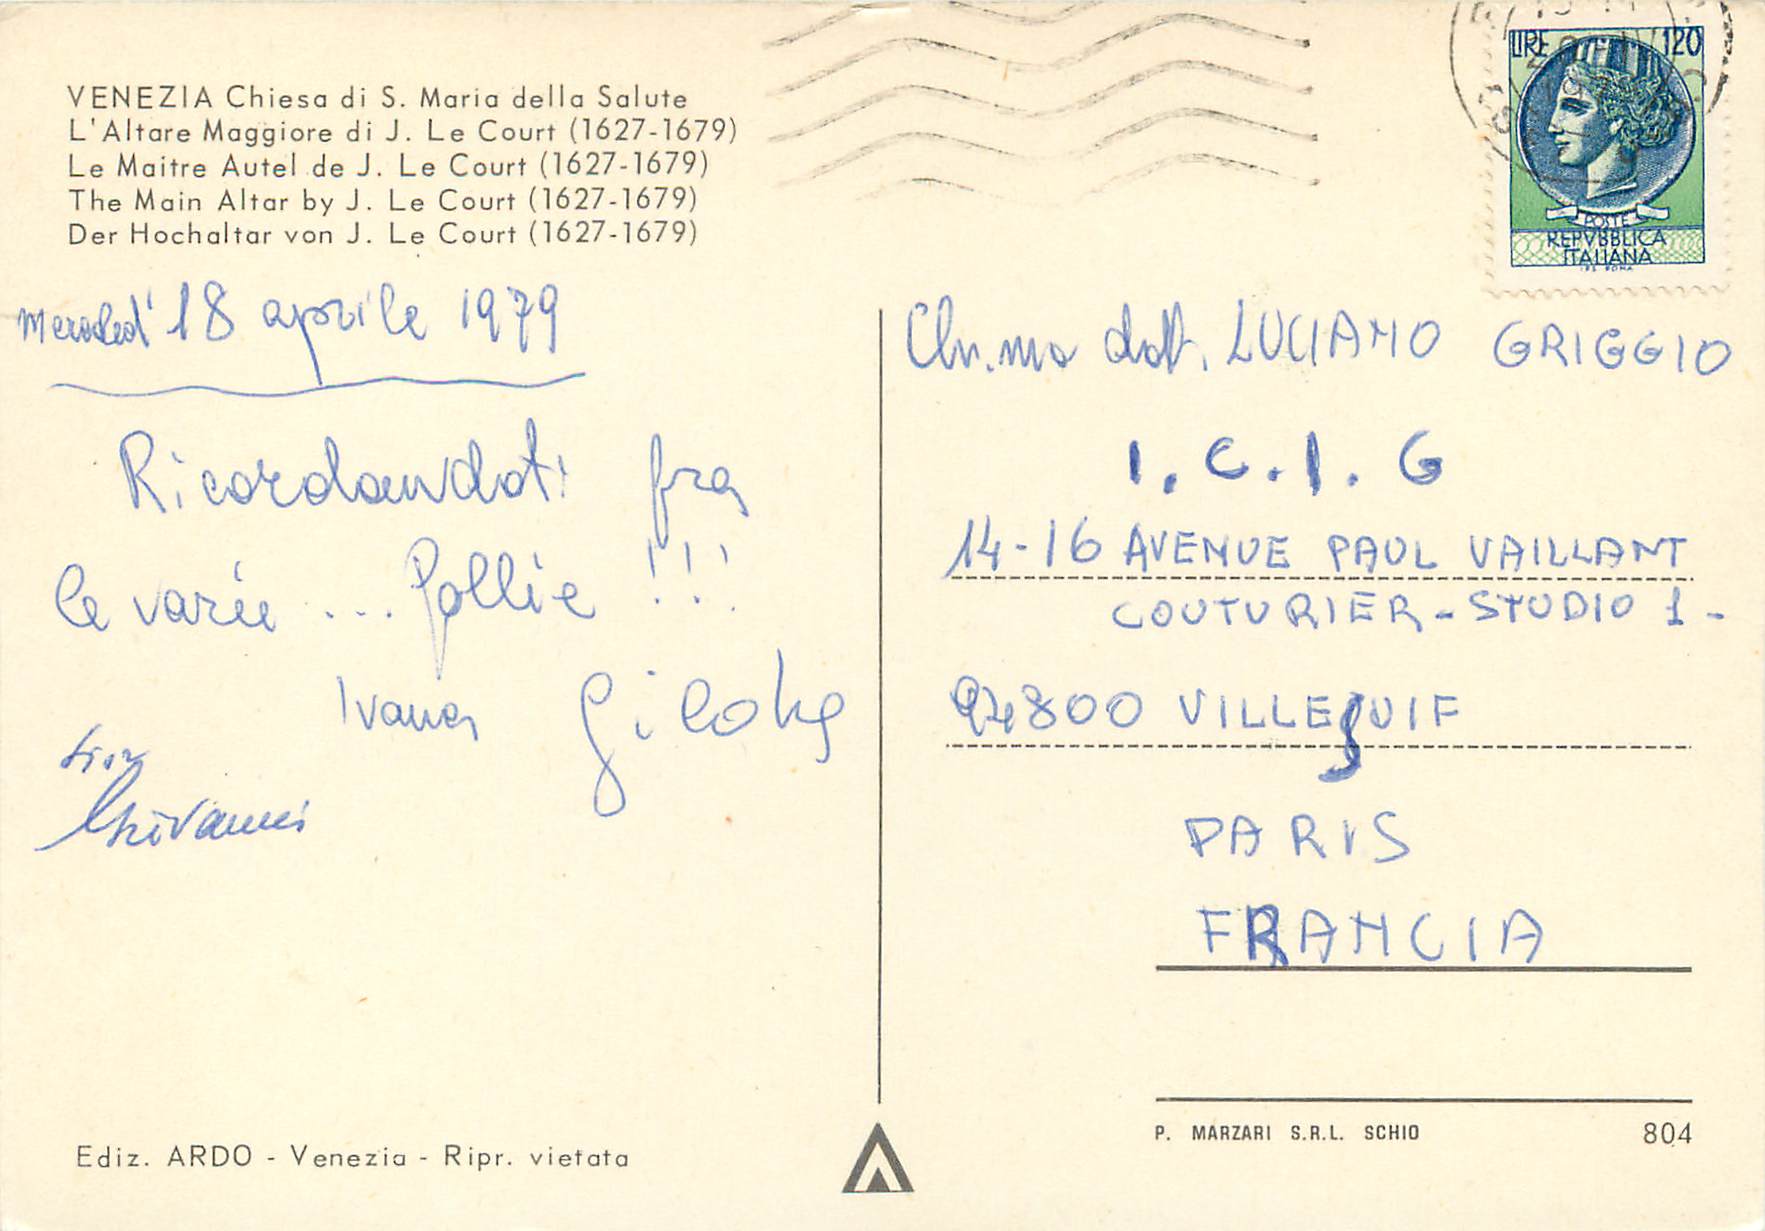 VENEZIA Chiesa di S. Maria della Salute
L'Altare Maggiore di J. Le Court (1627-1679)
Le Maitre Autel de J. Le Court (1627-1679)
The Main Altar by J. Le Court (1627-1679)
Der Hochaltar von J. Le Court (1627-1679)
Mercoledì 18 aprile 1979
Ricordandoti fra
le varie ... follie !!!
Ivana
Giovanni
Ediz. ARDO - Venezia - Ripr. vietata
LIRE 120
POSTE
REPVBBLICA
ITALIANA
I.P.S. ROMA
dott. LUCIANO GRIGGIO
I.C.I.G
14-16 AVENUE PAUL VAILLANT
COUTURIER - STUDIO 1 -
94800 VILLEJUIF
PARIS
FRANCIA
P. MARZARI S.R.L. SCHIO
804